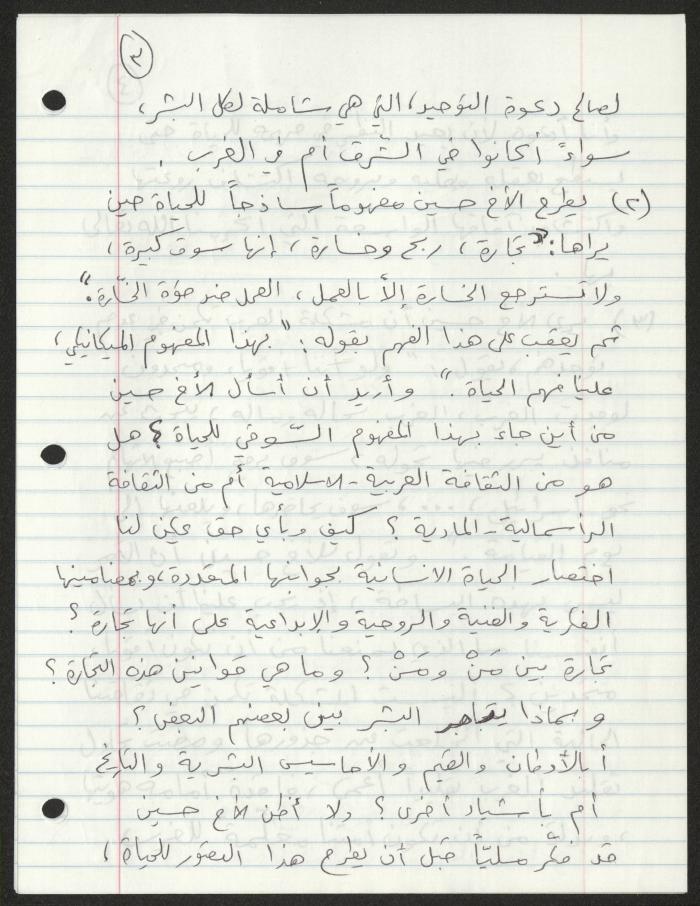 ٣
لصالح دعوة التوحيد، التي هي شاملة لكل البشر،
سواءً أكانوا في الشّرق أم في الغرب.
(٢) يطرح الأخ حسين مفهوماً ساذجاً للحياة حين
يراها: "تجارة، ربح وخسارة، إنها سوق كبيرة،
ولا تسترجع الخسارة إلاّ بالعمل، العمل ضد هوّة الخسّارة."
ثم يعقب على هذا الفهم بقوله: "بهذا المفهوم الميكانيكي،
علينا فهم الحياة." وأريد أن أسأل الأخ حسين
من أين جاء بهذا المفهوم السّوقي للحياة؟ هل
هو من الثقافة العربية - الاسلامية أم من الثقافة
الرأسمالية - المادية؟ كيف وبأي حق يمكن لنا
اختصار الحياة الانسانية بجوانبها المتعددة، وبمضامينها
الفكرية والفنية والروحية والإبداعية على أنها تجارة؟
تجارة بين مَنْ ومَنْ؟ وما هي قوانين هذه التجارة؟
وبماذا يتاجر البشر بين بعضهم البعض؟
أبالأوطان والقيم والأحاسيس البشرية والتاريخ
أم بأشياء أخرى؟ ولا أظن الأخ حسين
قد فكّر مليّاً قبل أن يطرح هذا التصور للحياة،